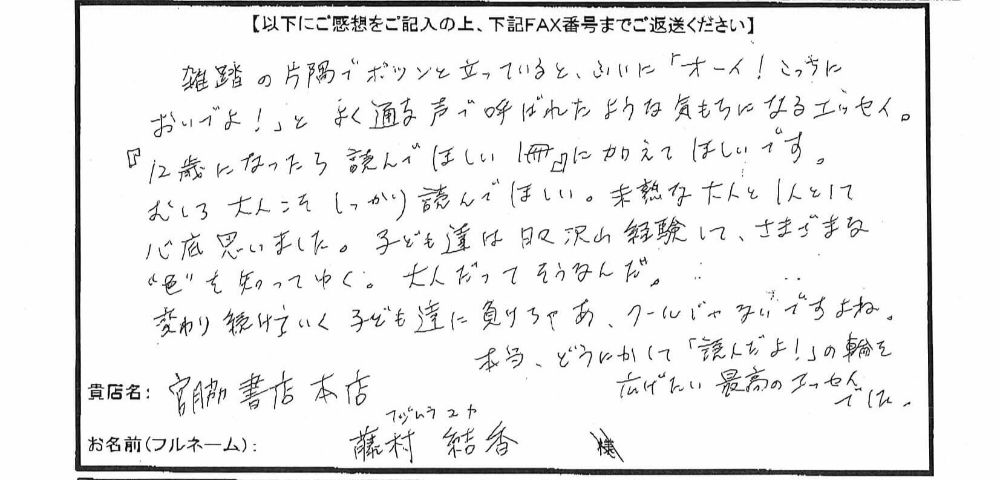 【以下にご感想をご記入の上、下記FAX番号までご返送ください】
雑踏の片隅でポツンと立っていると、ふいに「オーイ!こっちに
おいでよ!」と よく通る声で呼ばれたような気もちになるエッセイ。
『12歳になったら読んでほしい1冊』に加えてほしいです。
むしろ大人こそしっかり読んでほしい。未熟な大人の1人として
心底思いました。子ども達は日々沢山経験して、さまざまな
“色”を知ってゆく。大人だってそうなんだ。
変わり続けていく子ども達に負けちゃあ、クールじゃないですよね。
本当、どうにかして「読んだよ!」の輪を
広げたい最高のエッセイ
でした。
貴店名: 宮脇書店本店
フジムラ ユカ
お名前(フルネーム): 藤村 結香 様